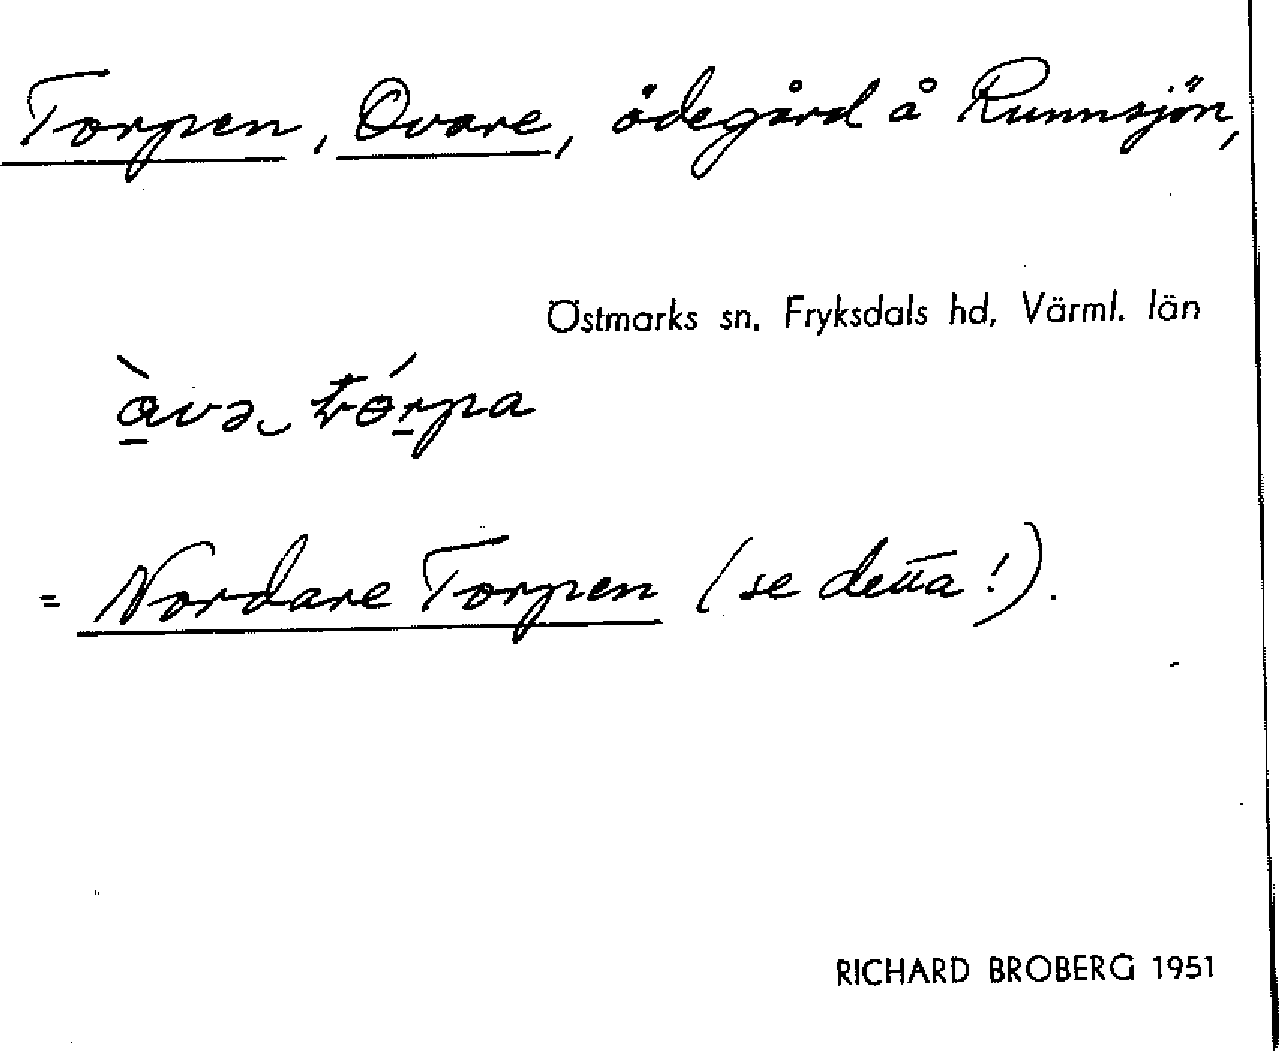 Torpen, Ovare, ödegård å Runnsjön,
Östmarks sn. Fryksdals hd, Värml. län
= Nordare Torpen (se detta!).
RICHARD BROBERG 1951